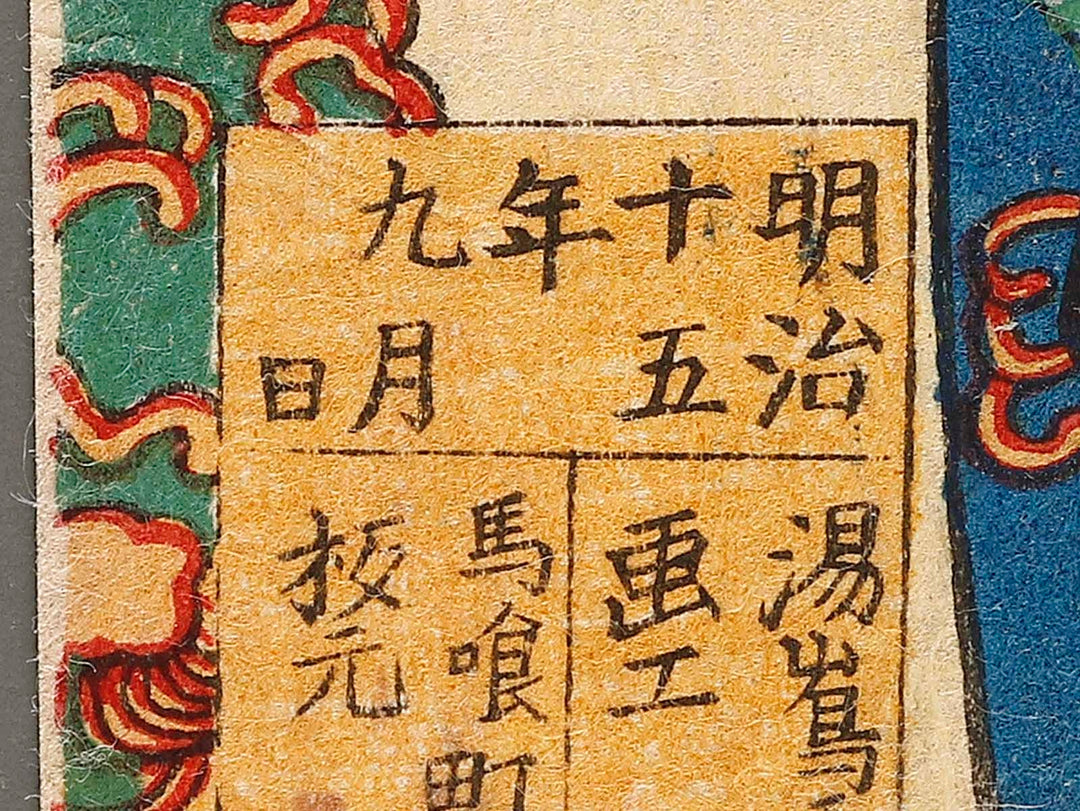 明治
十五
年
九月
日
湯嶌
画工
馬喰町
板元